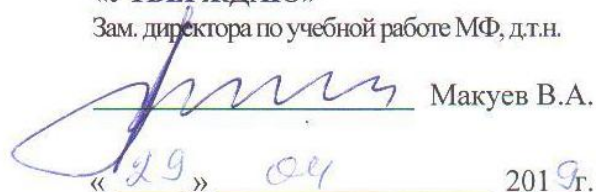 Зам. директора по учебной работе МФ, д.т.н.
Макуев В.А.
« 29 » 04 2019г.